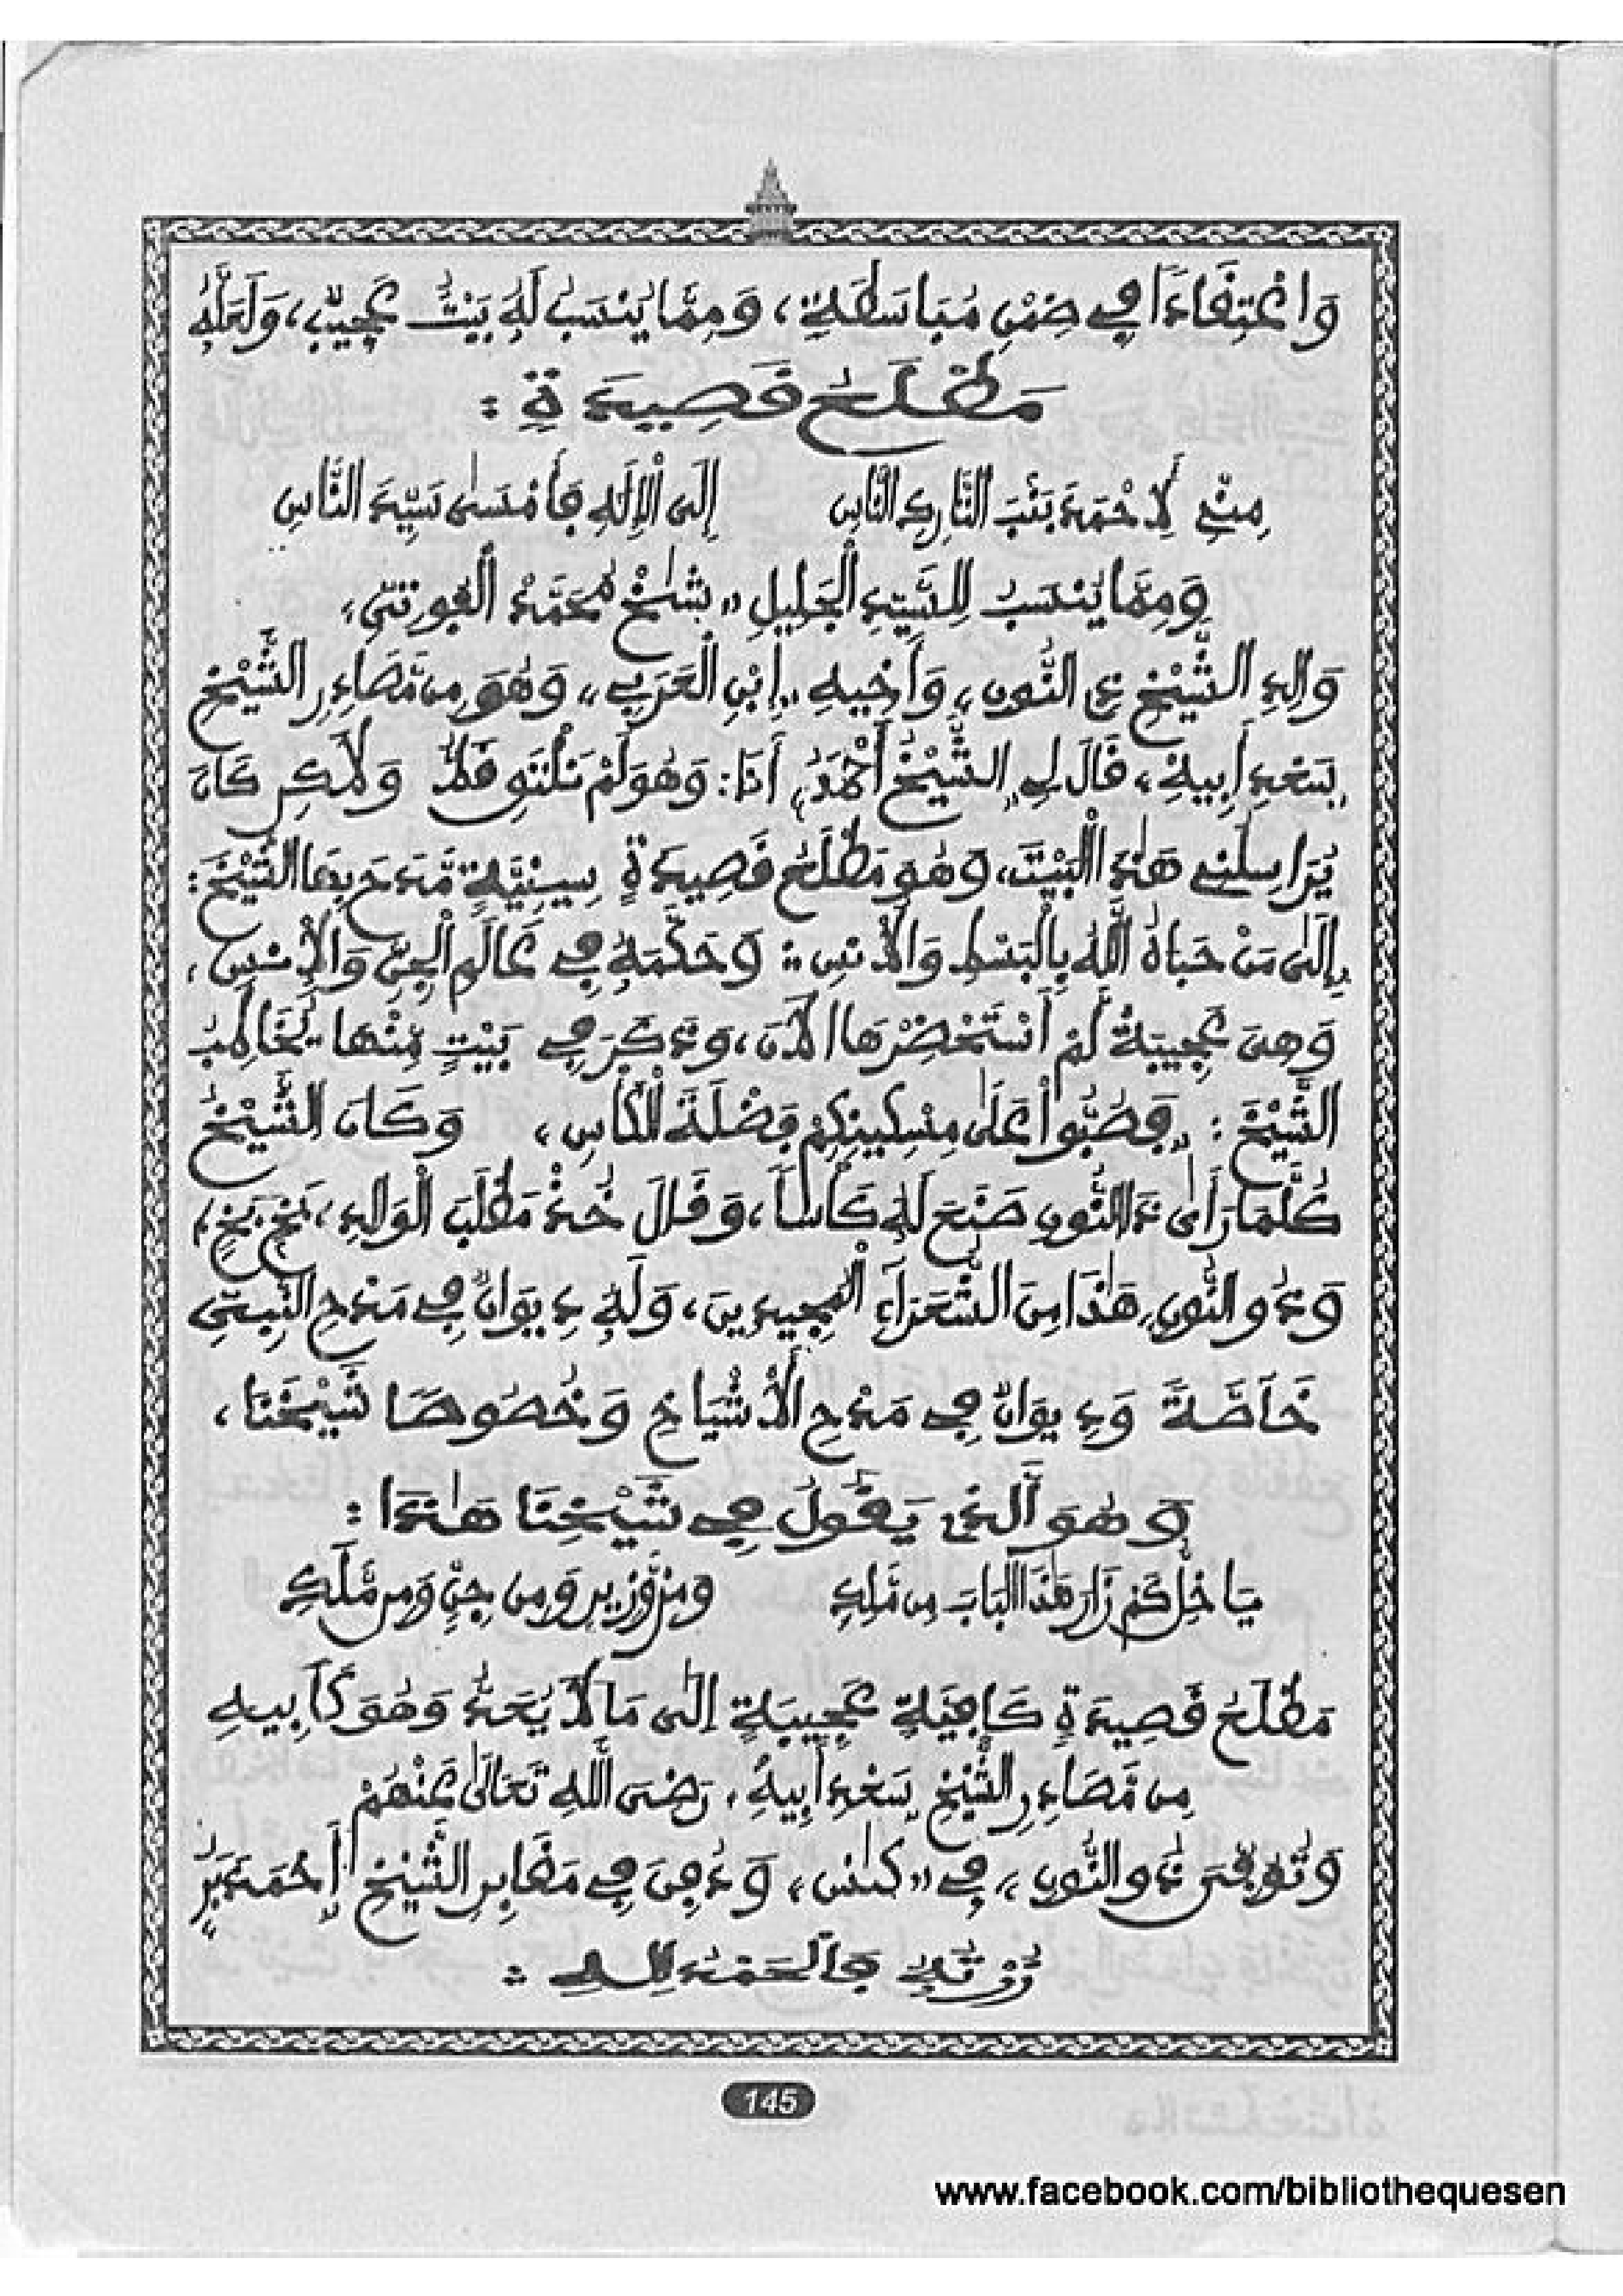 وَاعْتِقَادًا فِي ضِمْنِ مُبَاسَطَةٍ، وَمِمَّا يُنْسَبُ لَهُ بَيْتٌ عَجِيبٌ، وَلَعَلَّهُ
مَطْلَعُ قَصِيدَةٍ :
مِنِّي لِأَحْمَدَ بَنْبَ التَّارِكِ النَّاسِ إِلَى الْإِلَهِ فَأَمْسَى سَيِّدَ النَّاسِ
وَمِمَّا يُنْسَبُ لِلسَّيِّدِ الْجَلِيلِ "شَيْخْ مُحَمَّدْ الْفُوتِيِّ،
وَالِدِ الشَّيْخِ ذِي النُّونِ، وَأَخِيهِ "اِبْنِ الْعَرَبِي"، وَهُوَ مِن مَّصَادِرِ الشَّيْخِ
"سَعْدِ أَبِيهِ"، قَالَ لِي "الشَّيْخُ أَحْمَدُ" أَنَا: وَهُوَ لَمْ نَلْتَقِ قَطُّ وَلَكِن كَانَ
يُرَاسِلُنِي هَذَا الْبَيْتَ، وَهُوَ مَطْلَعُ قَصِيدَةٍ سِينِيَّةٍ مَّدَحَ بِهَا الشَّيْخَ:
"إِلَى مَنْ حَبَاهُ اللَّهُ بِالْبَسْطِ وَالْأُنْسِ :: وَحَكَّمَهُ فِي عَالَمِ الْجِنِّ وَالْإِنْسِ،
وَهِيَ عَجِيبَةٌ لَمْ أَسْتَحْضِرْهَا الْآنَ، وَذَكَرَ فِي بَيْتٍ مِّنْهَا يُخَاطِبُ
الشَّيْخَ : "فَصُبُّوا عَلَى مِسْكِينِكُمْ فَضْلَةَ الْكَاسِ، وَكَانَ الشَّيْخُ
كُلَّمَا رَأَى ذَا النُّونِ صَنَعَ لَهُ كَأْسًا، وَقَالَ خُذْ مَطْلَبَ الْوَالِدِ، بَخٍ بَخٍ،
وَذُو النُّونِ هَذَا مِنَ الشُّعَرَاءِ الْمُجِيدِينَ، وَلَهُ دِيوَانٌ فِي مَدْحِ النَّبِيِّ
خَاصَّةً وَدِيوَانٌ فِي مَدْحِ الْأَشْيَاخِ وَخُصُوصًا شَيْخَنَا،
وَهُوَ الَّذِي يَقُولُ فِي شَيْخِنَا هَذَا :
يَا خِلِّ كَمْ زَارَ هَذَا الْبَابَ مِن مَّلِكِ وَمِن وَّزِيرٍ وَمِن جِنٍّ وَمِن مَّلَكِ
مَطْلَعُ قَصِيدَةٍ كَافِيَةٍ عَجِيبَةٍ إِلَى مَا لَا يُحَدُّ وَهُوَ كَأَبِيهِ
مِن مَّصَادِرِ الشَّيْخِ "سَعْدِ أَبِيهِ"، رَضِيَ اللَّهُ تَعَالَى عَنْهُمْ
وَتُوُفِّيَ ذُو النُّونِ، فِي "كِاس، وَدُفِنَ فِي مَقَابِرِ الشَّيْخِ "أَحْمَدَ
فَالْحَمْدُ لِلَّهِ ::
145
www.facebook.com/bibliothequesen